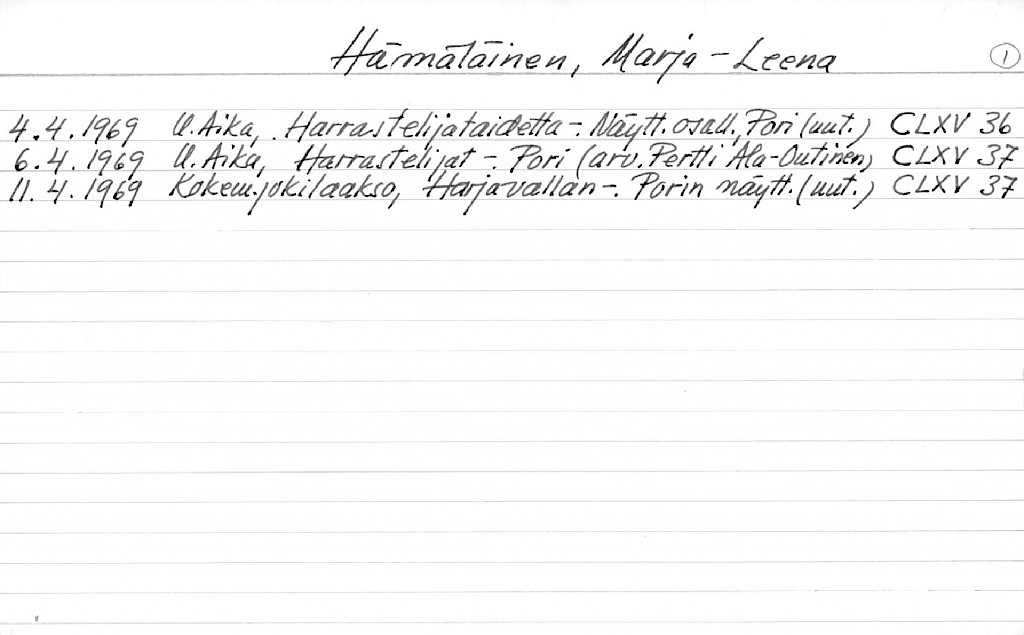 Hämäläinen, Marja-Leena 1
4.4.1969 U.Aika, Harrastelijataidetta -. Näytt.osall., Pori (uut.) CLXV 36
6.4.1969 U.Aika, Harrastelijat -. Pori (arv. Pertti Ala-Outinen) CLXV 37
11.4.1969 Kokem.jokilaakso, Harjavallan -. Porin näytt. (uut.) CLXV 37